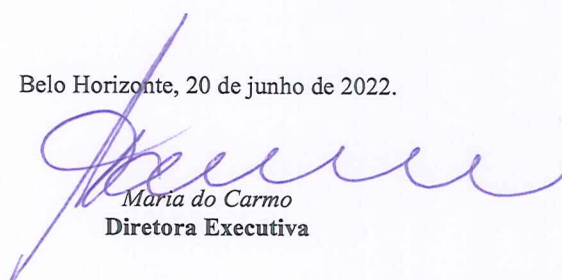 Belo Horizonte, 20 de junho de 2022.
Maria do Carmo
Diretora Executiva